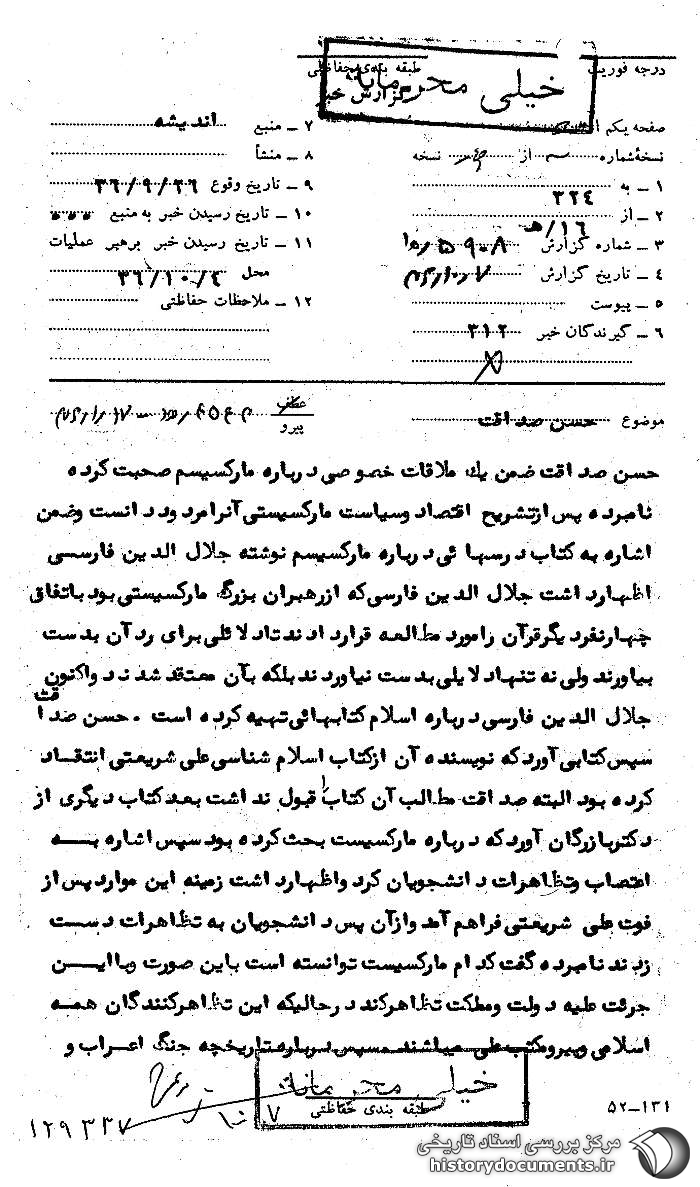 درجه فوریت
طبقه بندی حفاظتی
خیلی محرمانه
گزارش خبر
صفحه یکم از
نسخهٔ شماره از نسخه
۱ ــ به
۳۲۴
۲ ــ از
۱۶/هـ
۳ ــ شماره گزارش
۴ ــ تاریخ گزارش
۵ ــ پیوست
۶ ــ گیرندگان خبر ۳۱۲
۷ ــ منبع اندیشه
۸ ــ منشأ
۹ ــ تاریخ وقوع ۳۶/۹/۲۶
۱۰ ــ تاریخ رسیدن خبر به منبع
۱۱ ــ تاریخ رسیدن خبر برهبر عملیات
محل ۳۶/۱۰/۴
۱۲ ــ ملاحظات حفاظتی
موضوع حسن صداقت
عطف
پیرو
حسن صداقت ضمن یك ملاقات خصوصی درباره مارکسیسم صحبت کرده
نامبرده پس ازتشریح اقتصاد وسیاست مارکسیستی آنرا مردود دانست وضمن
اشاره به کتاب درسهائی درباره مارکسیسم نوشته جلال الدین فارسی
اظهارداشت جلال الدین فارسی که ازرهبران بزرگ مارکسیستی بود باتفاق
چهارنفردیگرقرآن رامورد مطالعه قراردادند تادلائلی برای رد آن بدست
بیاورند ولی نه تنهادلایلی بدست نیاوردند بلکه بآن معتقد شدند واکنون
جلال الدین فارسی درباره اسلام کتابهائی تهیه کرده است . حسن صداقت
سپس کتابی آورد که نویسنده آن ازکتاب اسلام شناسی علی شریعتی انتقاد
کرده بود البته صداقت مطالب آن کتاب را قبول نداشت بعد کتاب دیگری از
دکتربازرگان آورد که درباره مارکسیست بحث کرده بود سپس اشاره بـه
اعتصاب وتظاهرات دانشجویان کرد واظهارداشت زمینه این موارد پس از
فوت علی شریعتی فراهم آمد وازآن پس دانشجویان به تظاهرات دست
زدند نامبرده گفت کدام مارکسیست توانسته است باین صورت وبا این
جرئت علیه دولت ومملکت تظاهرکند درحالیکه این تظاهرکنندگان همه
اسلامی وپیرومکتب علی میباشند . سپس درباره تاریخچه جنگ اعراب و
خیلی محرمانه
طبقه بندی حفاظتی
۱۰/۷
۱۲۹۳۳۷
۵۲ــ۱۳۱
مرکز بررسی اسناد تاریخی
historydocuments.ir